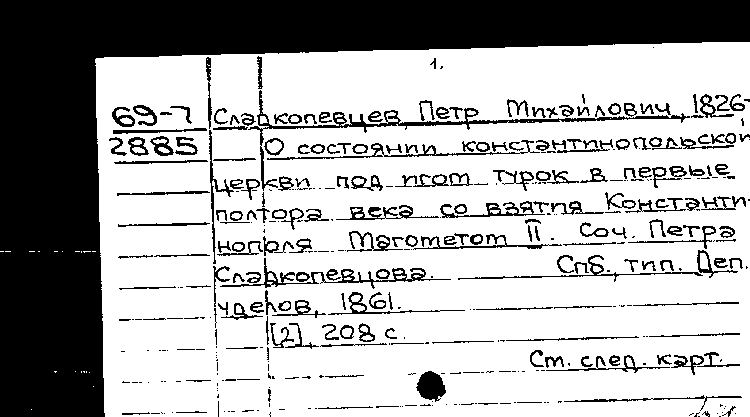 1.
69-7 Сладкопевцев, Петр Михайлович, 1826-
2885 О состоянии константинопольской
церкви под игом турок в первые
полтора века со взятия Константи-
нополя Магометом II. Соч. Петра
Сладкопевцова. Спб., тип. Деп.
уделов, 1861.
[2], 208 с.
См. след. карт.